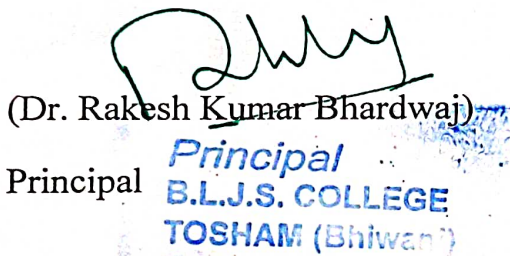 (Dr. Rakesh Kumar Bhardwaj)
Principal
Principal
B.L.J.S. COLLEGE
TOSHAM (Bhiwani)